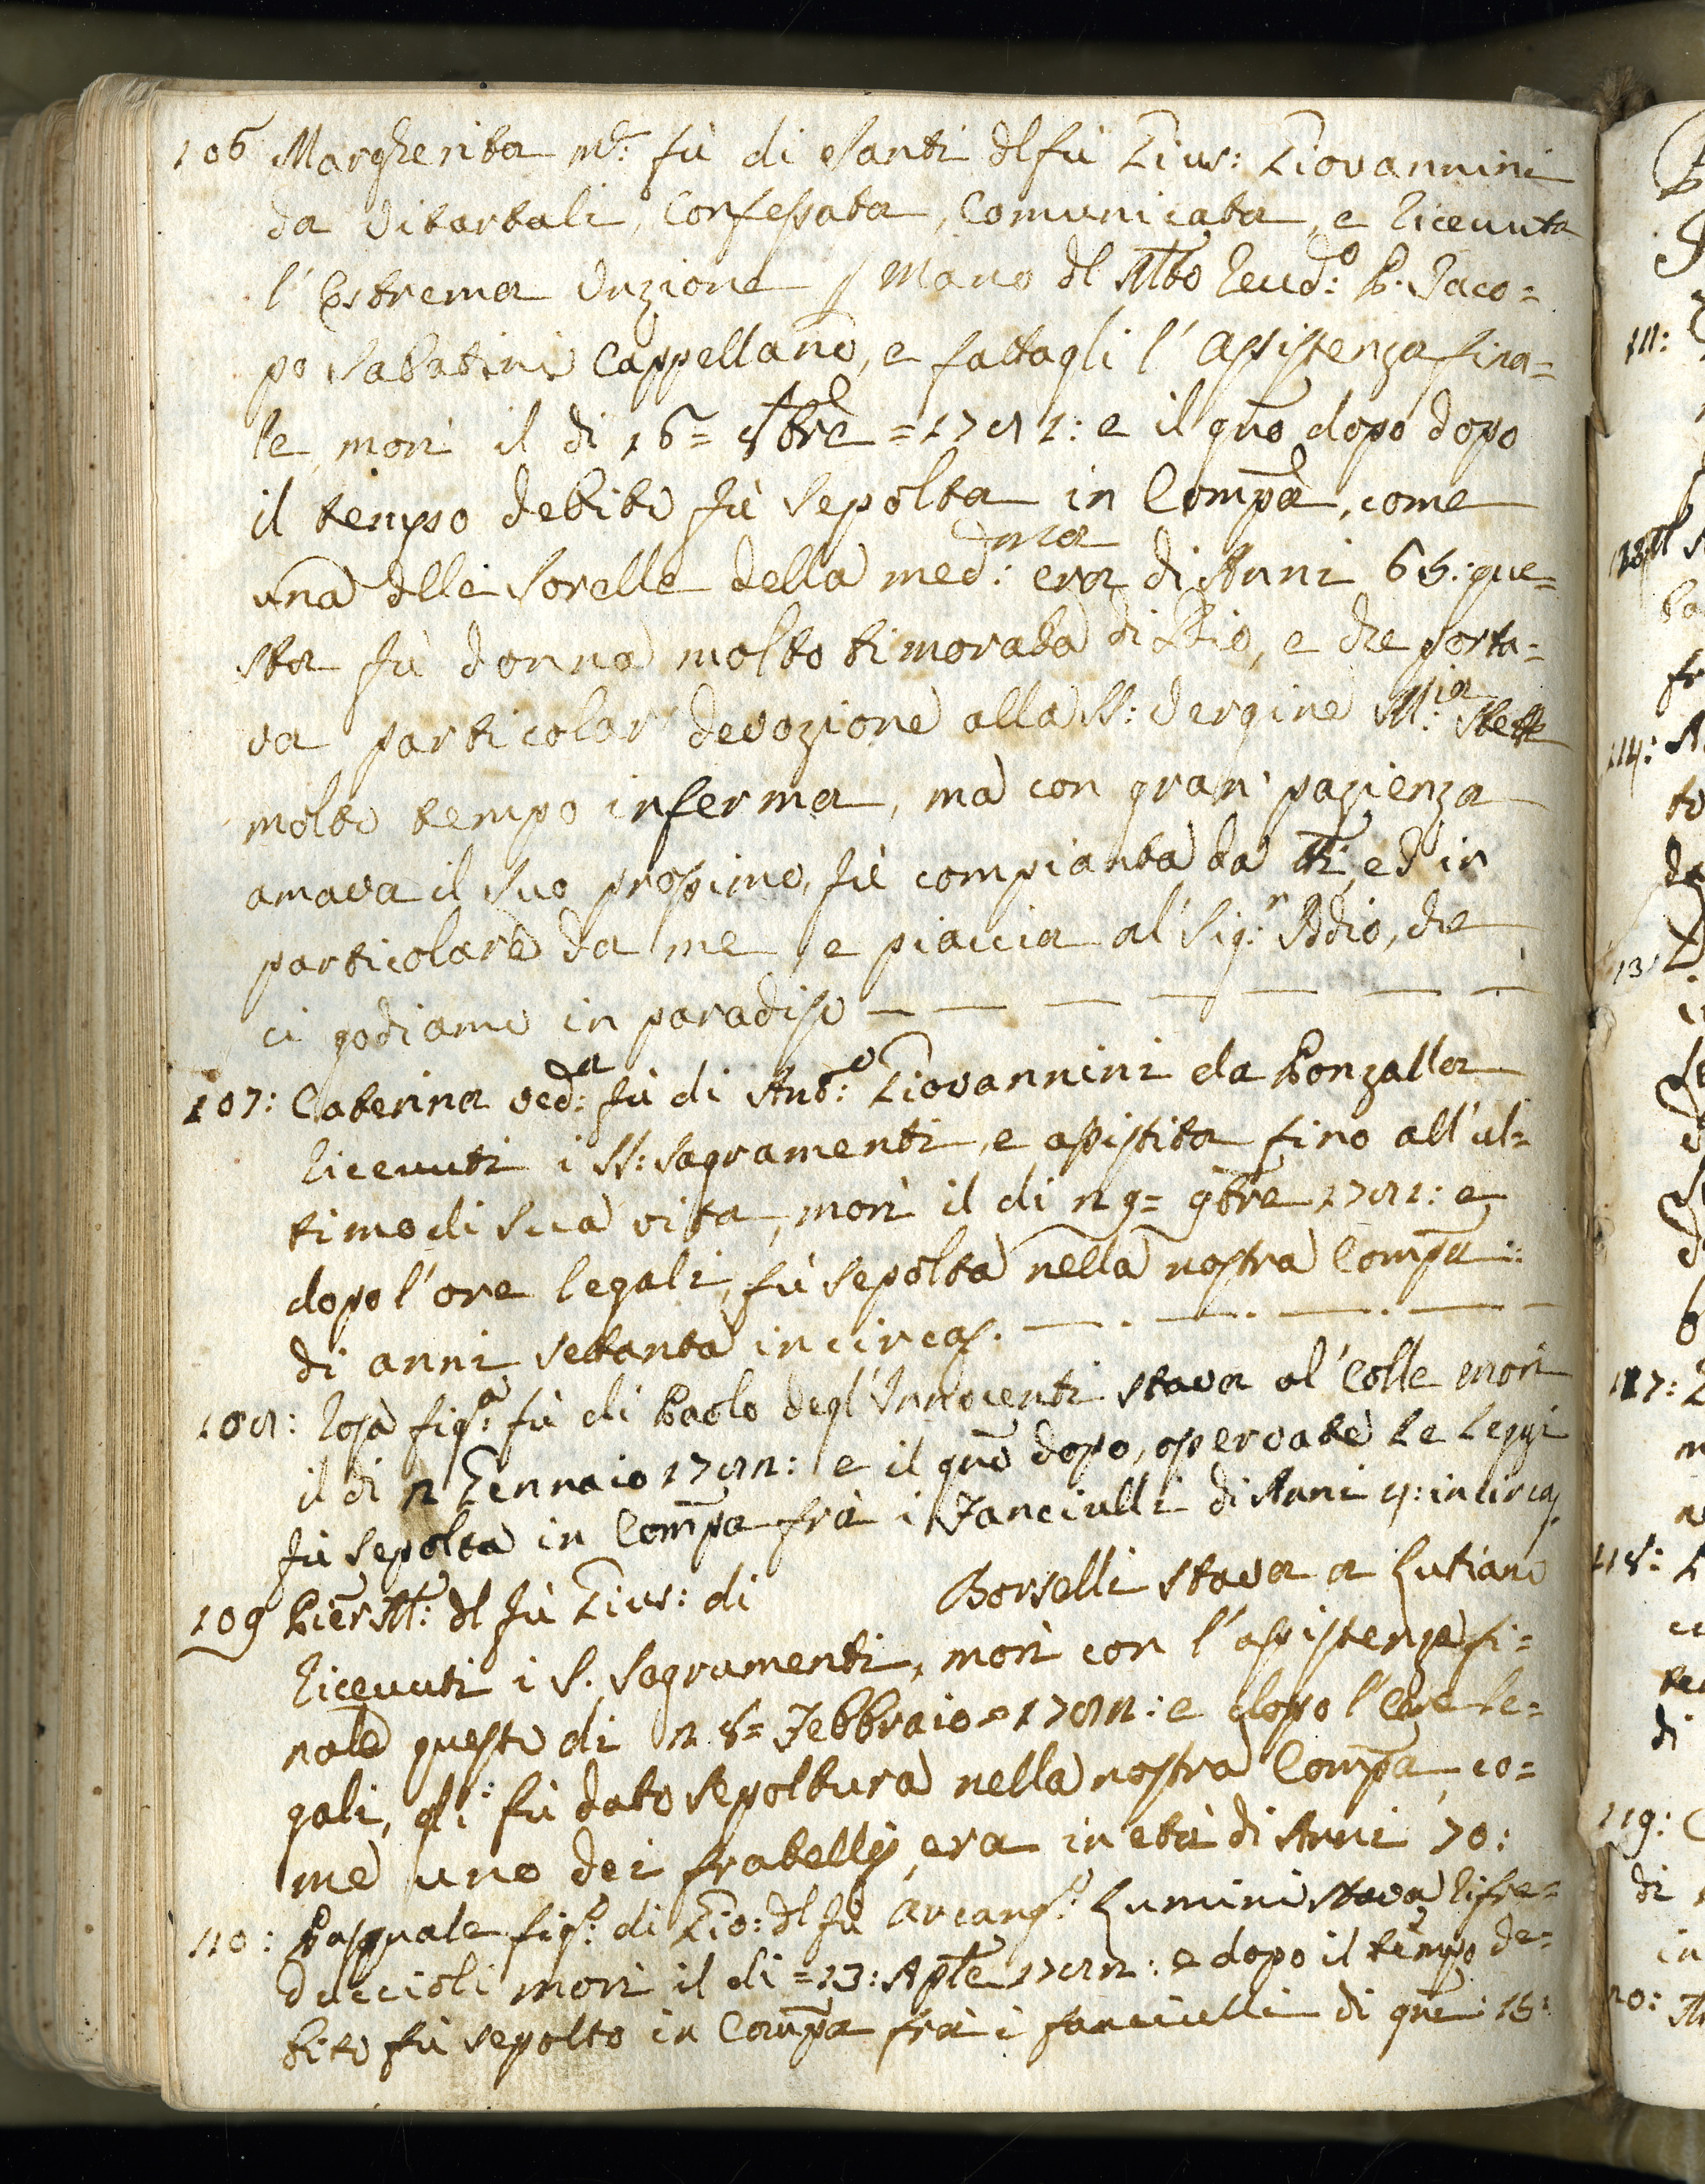 106 Margherita m.e fù di Santi dl fù Gius: Giovannini
da Vitartali, Confessata, Comunicata, e ricevuta
l'Estrema Unzione p mano dl Mto Reud:o P. Jaco=
po Sabatini Cappellano, e fattagli l'assistenza fina=
le, morì il dì 16= 8bre =1781: e il gno dopo dopo
il tempo debito fù sepolta in Compa, come
una dlle Sorelle della med:ma era di Anni 65: que=
sta fù donna molto timorata di Dio, e che porta=
va particolar devozione alla SS: Vergine M:ia stette
molto tempo inferma, ma con gran pazienza
amava il suo prossimo, fù compianta da tti, ed in
particolare da me e piaccia al Sig:r Iddio, che
ci godiamo in paradiso — — — — — — —
107: Caterina ved:a fù di Ant:o Giovannini da Ponzalla
ricevuti i SS: sagramenti, e assistita fino all'ul=
timo di sua vita, morì il di 29= 9bre 1781: e
dopo l'ore legali, fù sepolta nella nostra Compa:
di anni settanta in circa. — . — . — . — —
108: Rosa fig:a fù di Paolo degl'Innocenti stava al Colle morì
il di 2 Gennaio 1782: e il gno dopo, osservate le leggi
fù sepolta in Compa frà i Fanciulli di Anni 4: in circa.
109 Pier M: dl fù Gius: di Borselli stava a Lutiano
ricevuti i S. Sagramenti, morì con l'assistenza fi=
nale questo di 28= Febbraio =1782: e dopo l'ore le=
gali, gli fù dato sepoltura nella nostra Compa, co=
me uno dei fratelli, era in età di Anni 70:
110: Pasquale fig:o di Gio: dl fù Arcang:o Lumini stava Rifre=
duccioli morì il di =13: Aple 1782: e dopo il tempo de=
bito fù sepolto in Compa frà i fanciulli di gni 15: